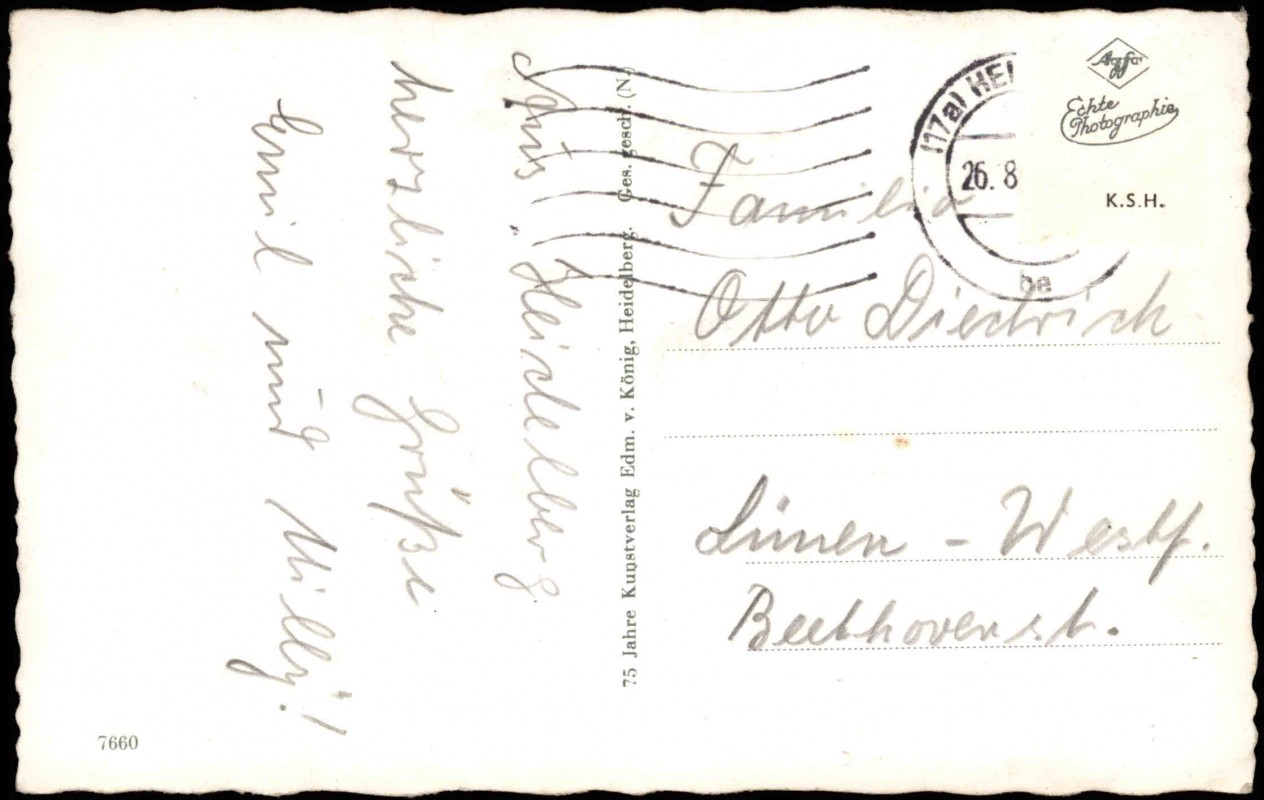 Aus Heidelberg
herzliche Grüße
Emil und Milly!
7660
75 Jahre Kunstverlag Edm. v. König, Heidelberg. Ges. gesch. (N.)
(17a) HEI
26. 8
be
Agfa
Echte
Photographie
K.S.H.
Familie
Otto Diedrich
Lünen - Westf.
Beethovenst.